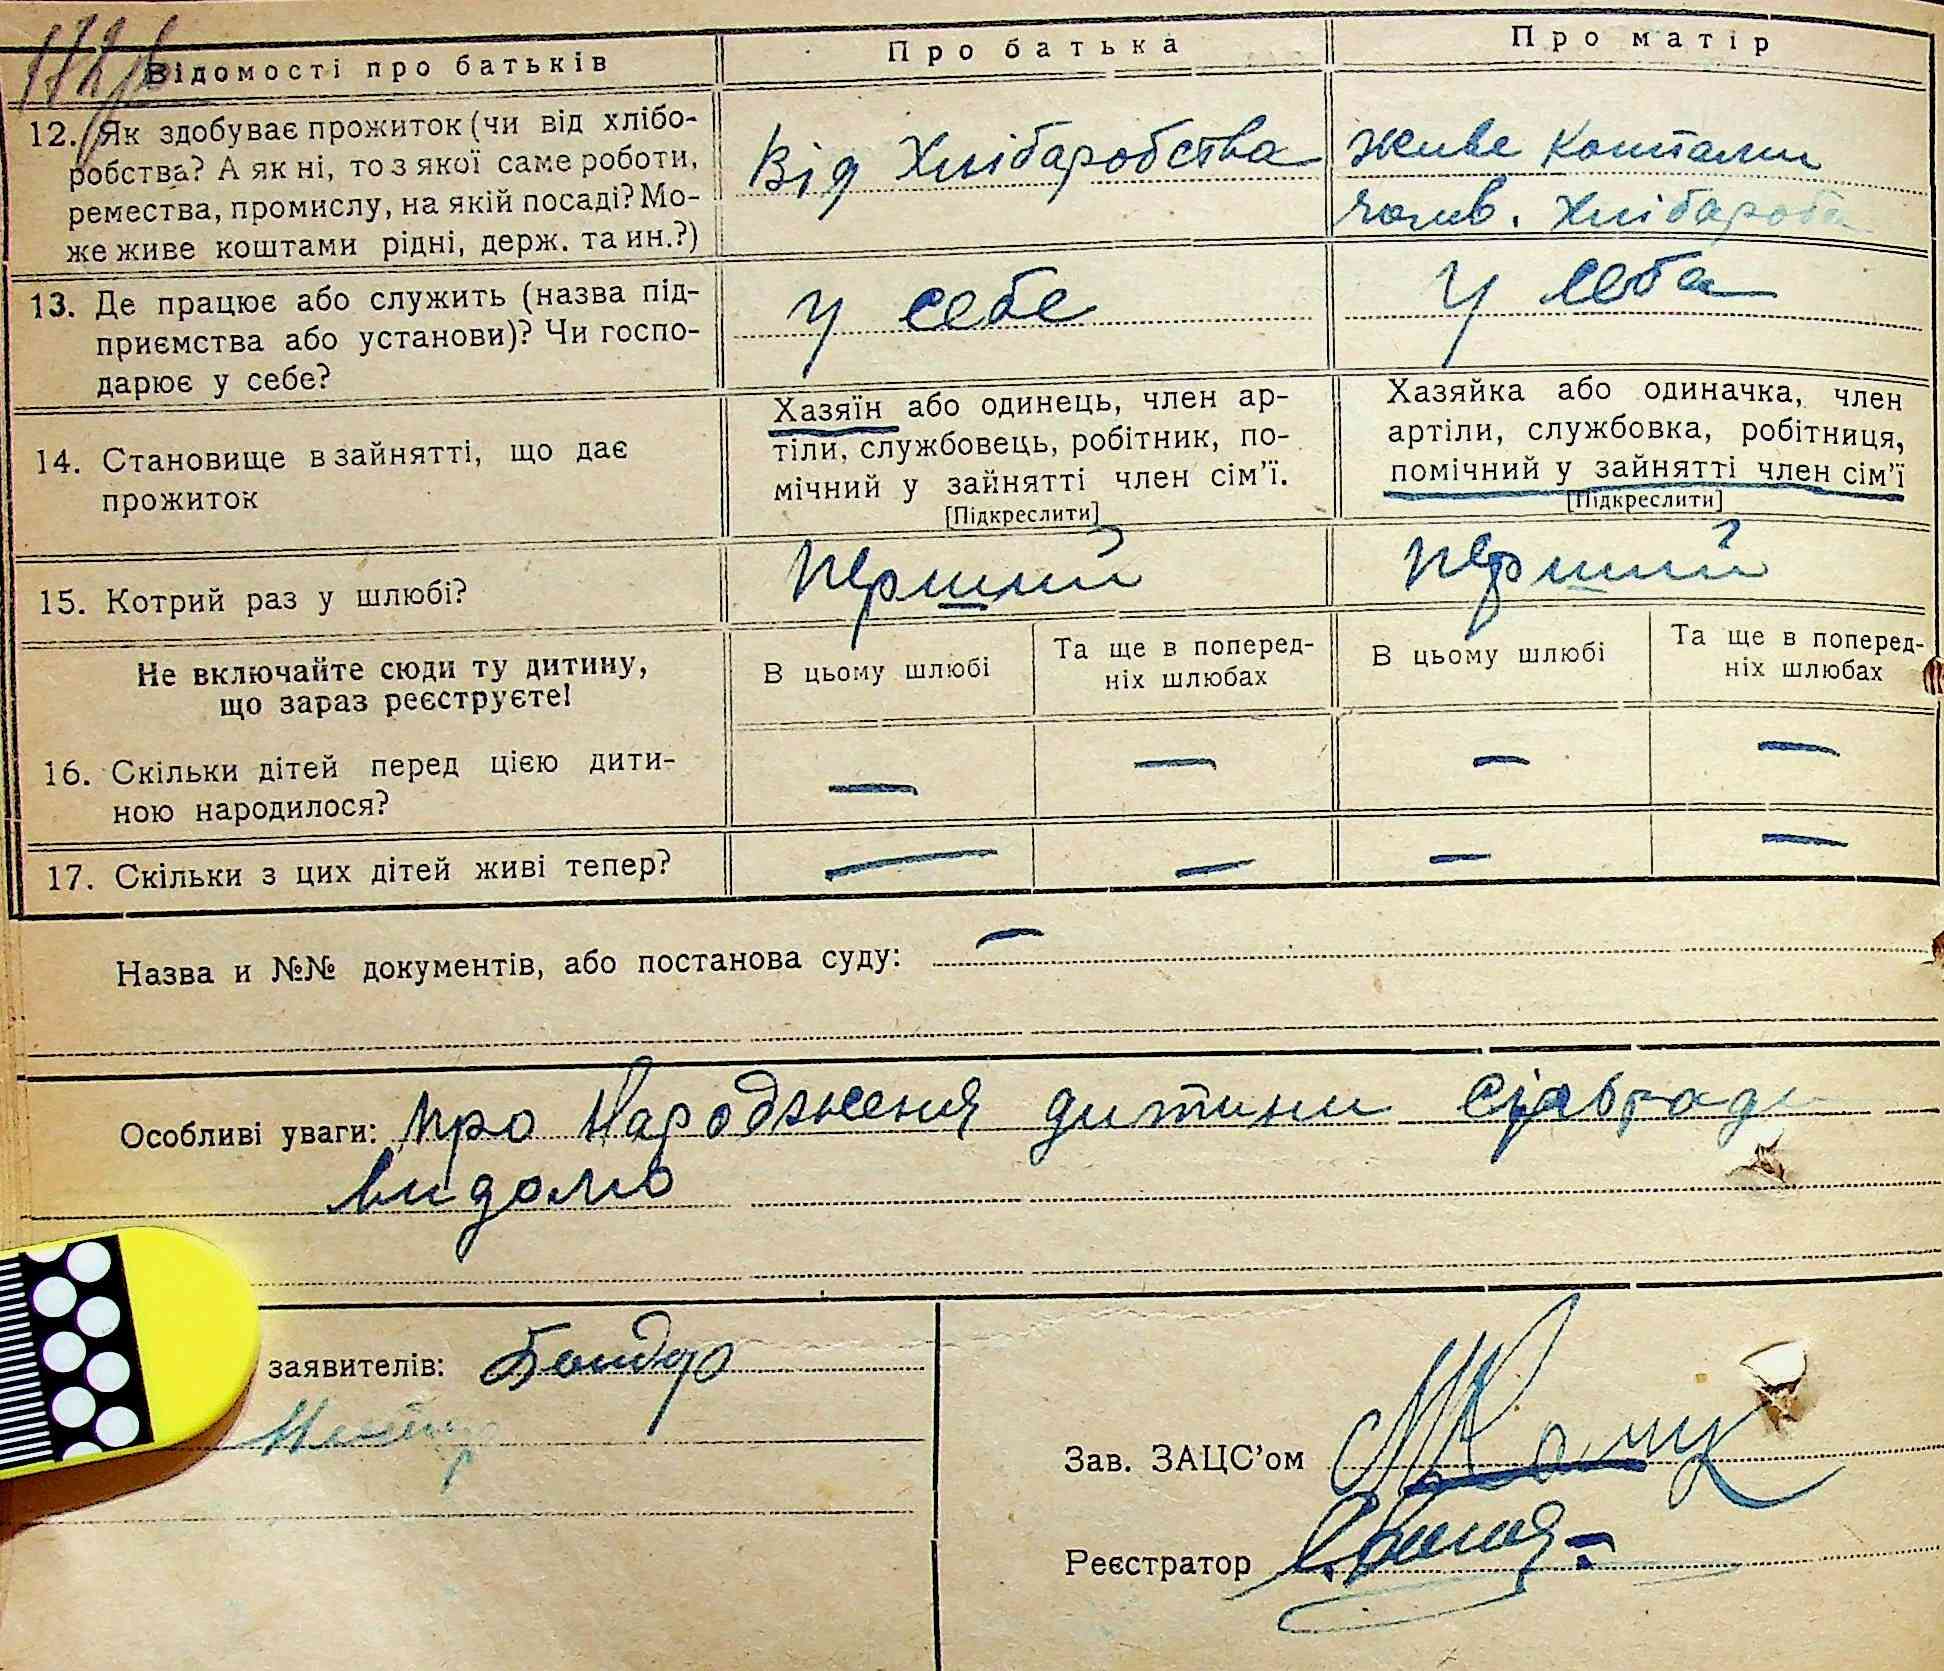 Відомості про батьків Про батька Про матір
12. Як здобуває прожиток (чи від хлібо-
робства? А як ні, то з якої саме роботи,
ремества, промислу, на якій посаді? Мо-
же живе коштами рідні, держ. та ин.?)
Від Хлібаробства
живе коштами
чолв. хлібароба
13. Де працює або служить (назва під-
приємства або установи)? Чи госпо-
дарює у себе?
у себе
у себа
14. Становище в зайнятті, що дає
прожиток
Хазяїн або одинець, член ар-
тіли, службовець, робітник, по-
мічний у зайнятті член сім'ї.
[Підкреслити]
Хазяйка або одиначка, член
артіли, службовка, робітниця,
помічний у зайнятті член сім'ї
[Підкреслити]
15. Котрий раз у шлюбі?
перший
перший
Не включайте сюди ту дитину,
що зараз реєструєте!
В цьому шлюбі
Та ще в поперед-
ніх шлюбах
В цьому шлюбі
Та ще в поперед-
ніх шлюбах
16. Скільки дітей перед цією дити-
ною народилося?
— — — —
17. Скільки з цих дітей живі тепер?
— — — —
Назва и №№ документів, або постанова суду: —
Особливі уваги: про народження дитини
видомо
заявителів: Бондар
Зав. ЗАЦС'ом
Реєстратор